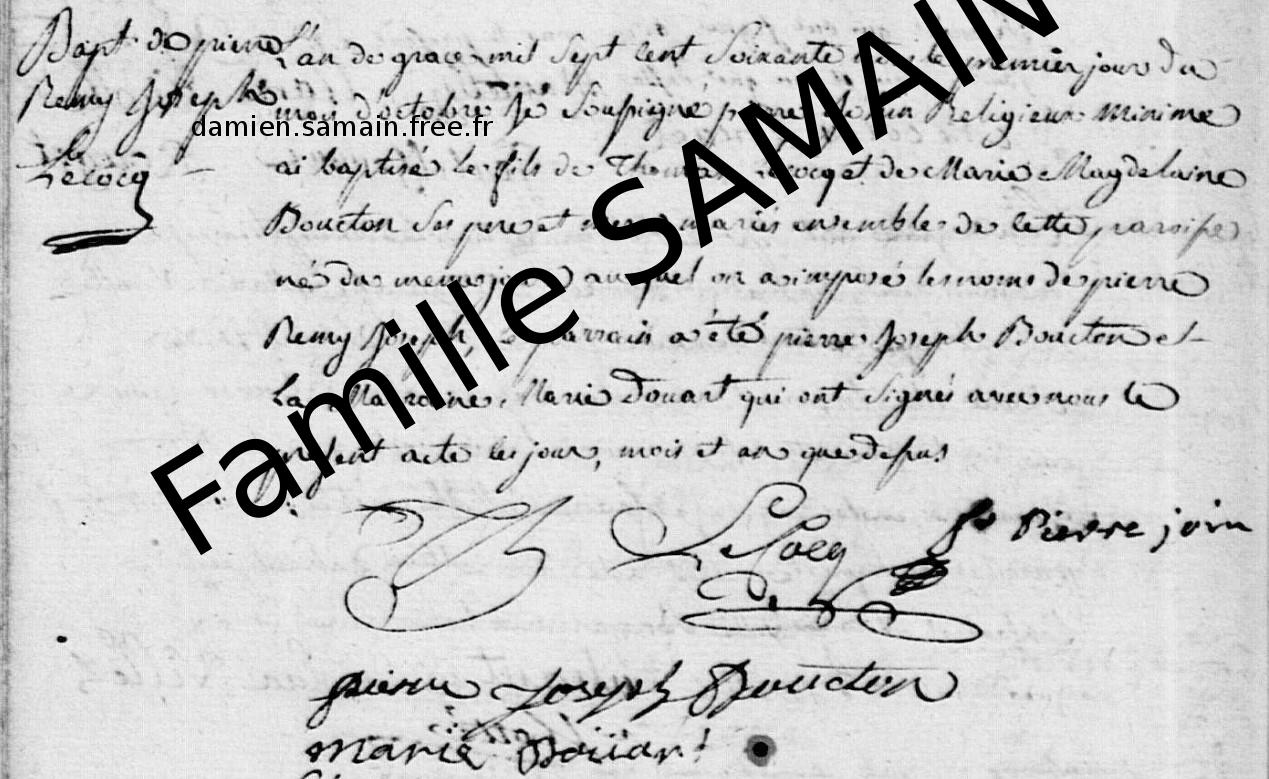 Bapt de pierre
Remy Joseph
Lecocq
L'an de grace mil sept cent soixante le premier jour du
mois d'octobre je soussigné pierre Religieux minime
ai baptisé le fils de Thomas Lecocq et de Marie Magdelaine
Boucton ses pere et mere mariés ensemble de cette paroisse
né du meme jour auquel on a imposé les noms de pierre
Remy Joseph, le parrain a été pierre Joseph Boucton et
La Marraine Marie Douart qui ont signés avec nous le
present acte les jour, mois et an que depus
LeCocq
fr Pierre join
pierre Joseph Boucton
marie Doüart
Famille SAMAIN
damien.samain.free.fr